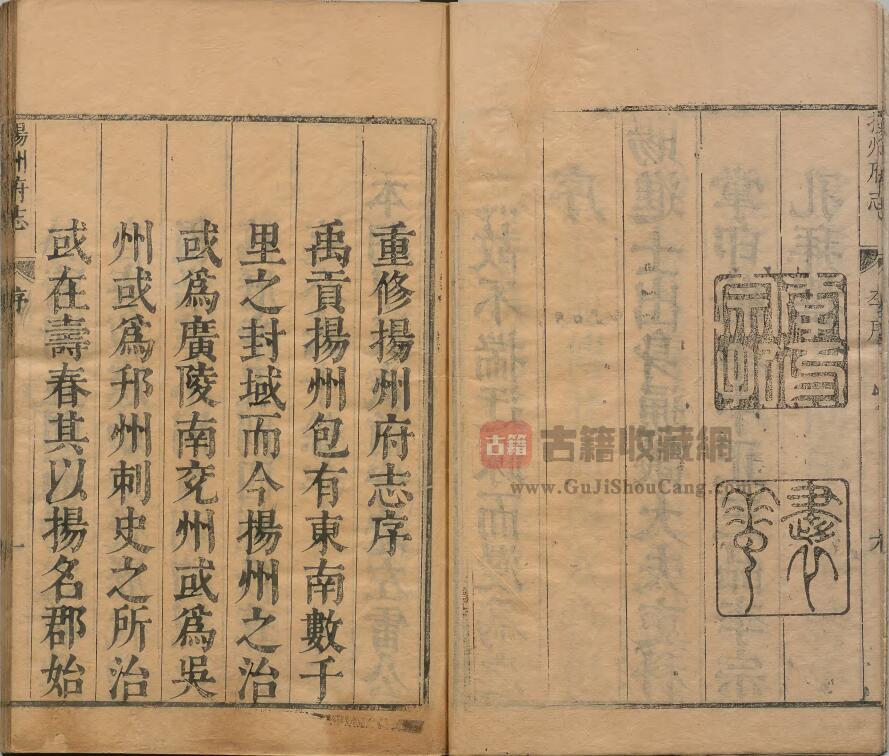 揚州府志
重修揚州府志序
禹貢揚州包有東南數千
里之封域而今揚州之治
或爲廣陵南兖州或爲吳
州或爲邗州刺史之所治
或在壽春其以揚名郡始
揚州府志
序
一
古籍
古籍收藏網
www.GuJiShouCang.com